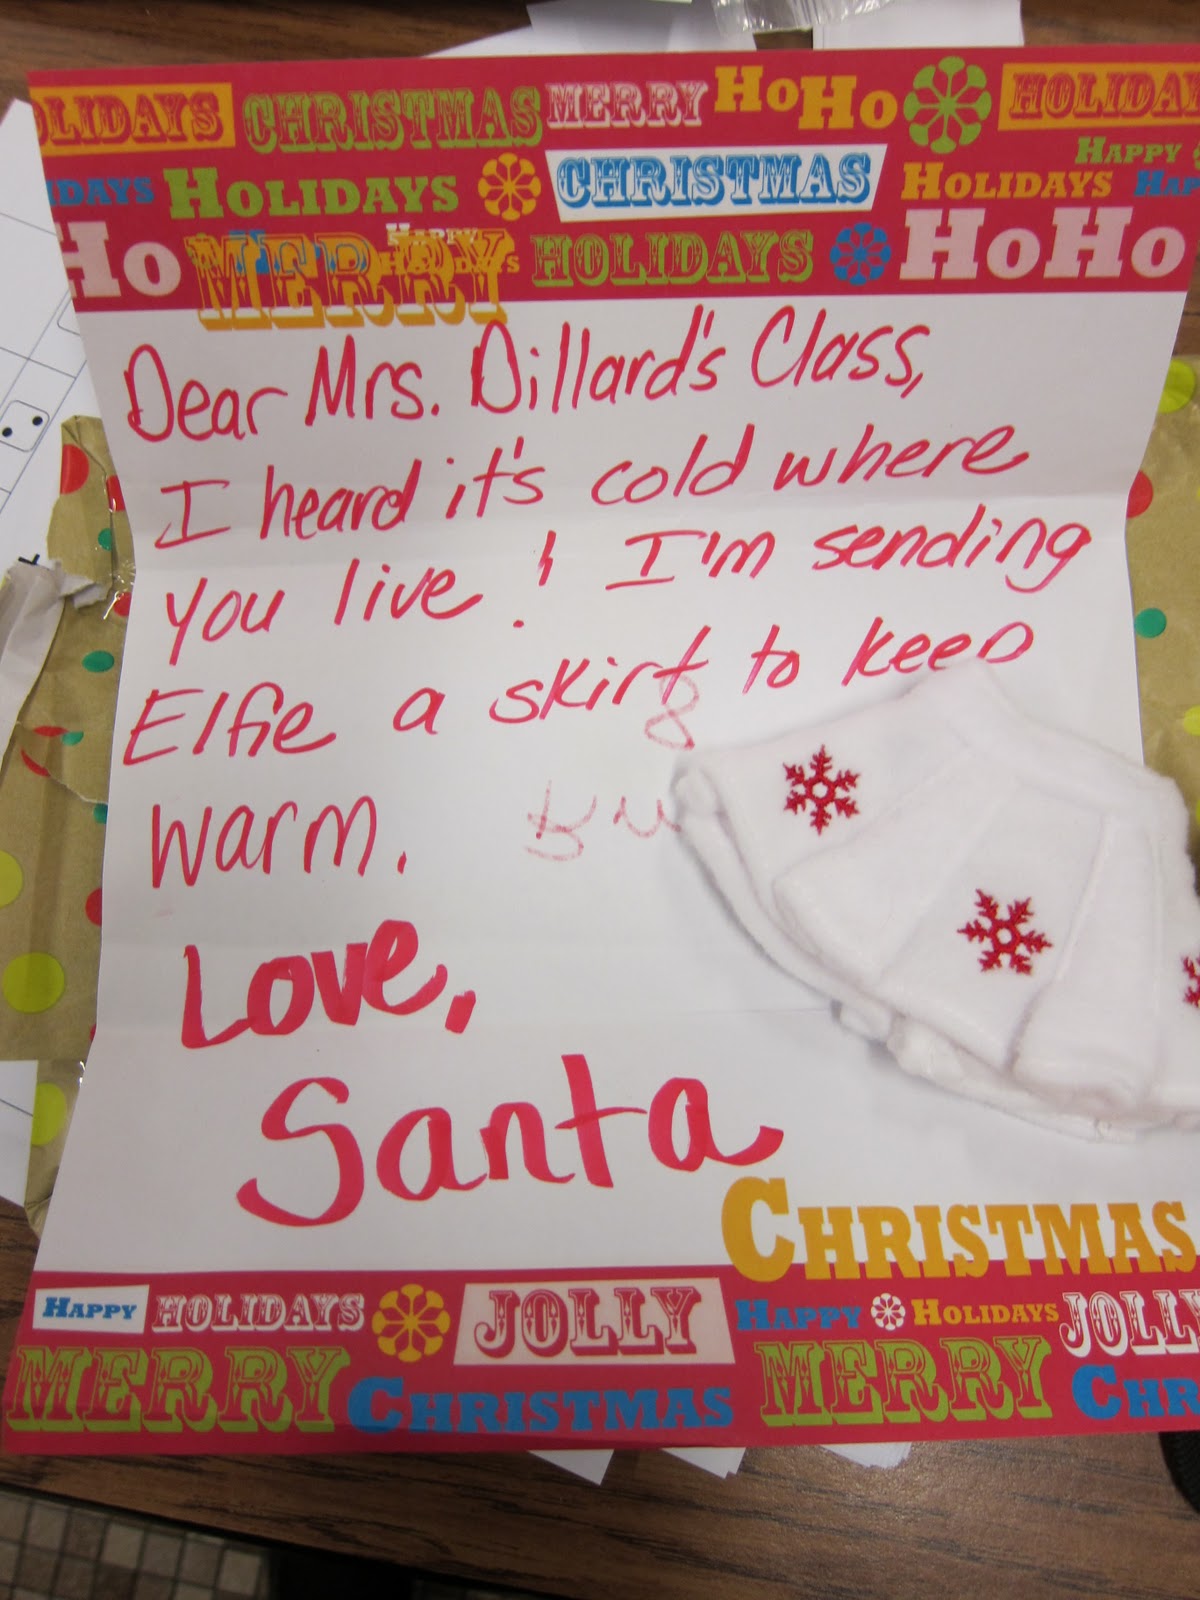 OLIDAYS CHRISTMAS MERRY HoHo HOLIDAY
HAPPY
IDAYS HOLIDAYS CHRISTMAS HOLIDAYS HAP
Ho MERRY HAPPY HOLIDAYS HOLIDAYS HoHo
Dear Mrs. Dillard's Class,
I heard it's cold where
you live! I'm sending
Elfie a skirt to keep
warm.
Love,
Santa
CHRISTMAS
HAPPY HOLIDAYS JOLLY HAPPY HOLIDAYS JOLLY
MERRY CHRISTMAS MERRY CHR